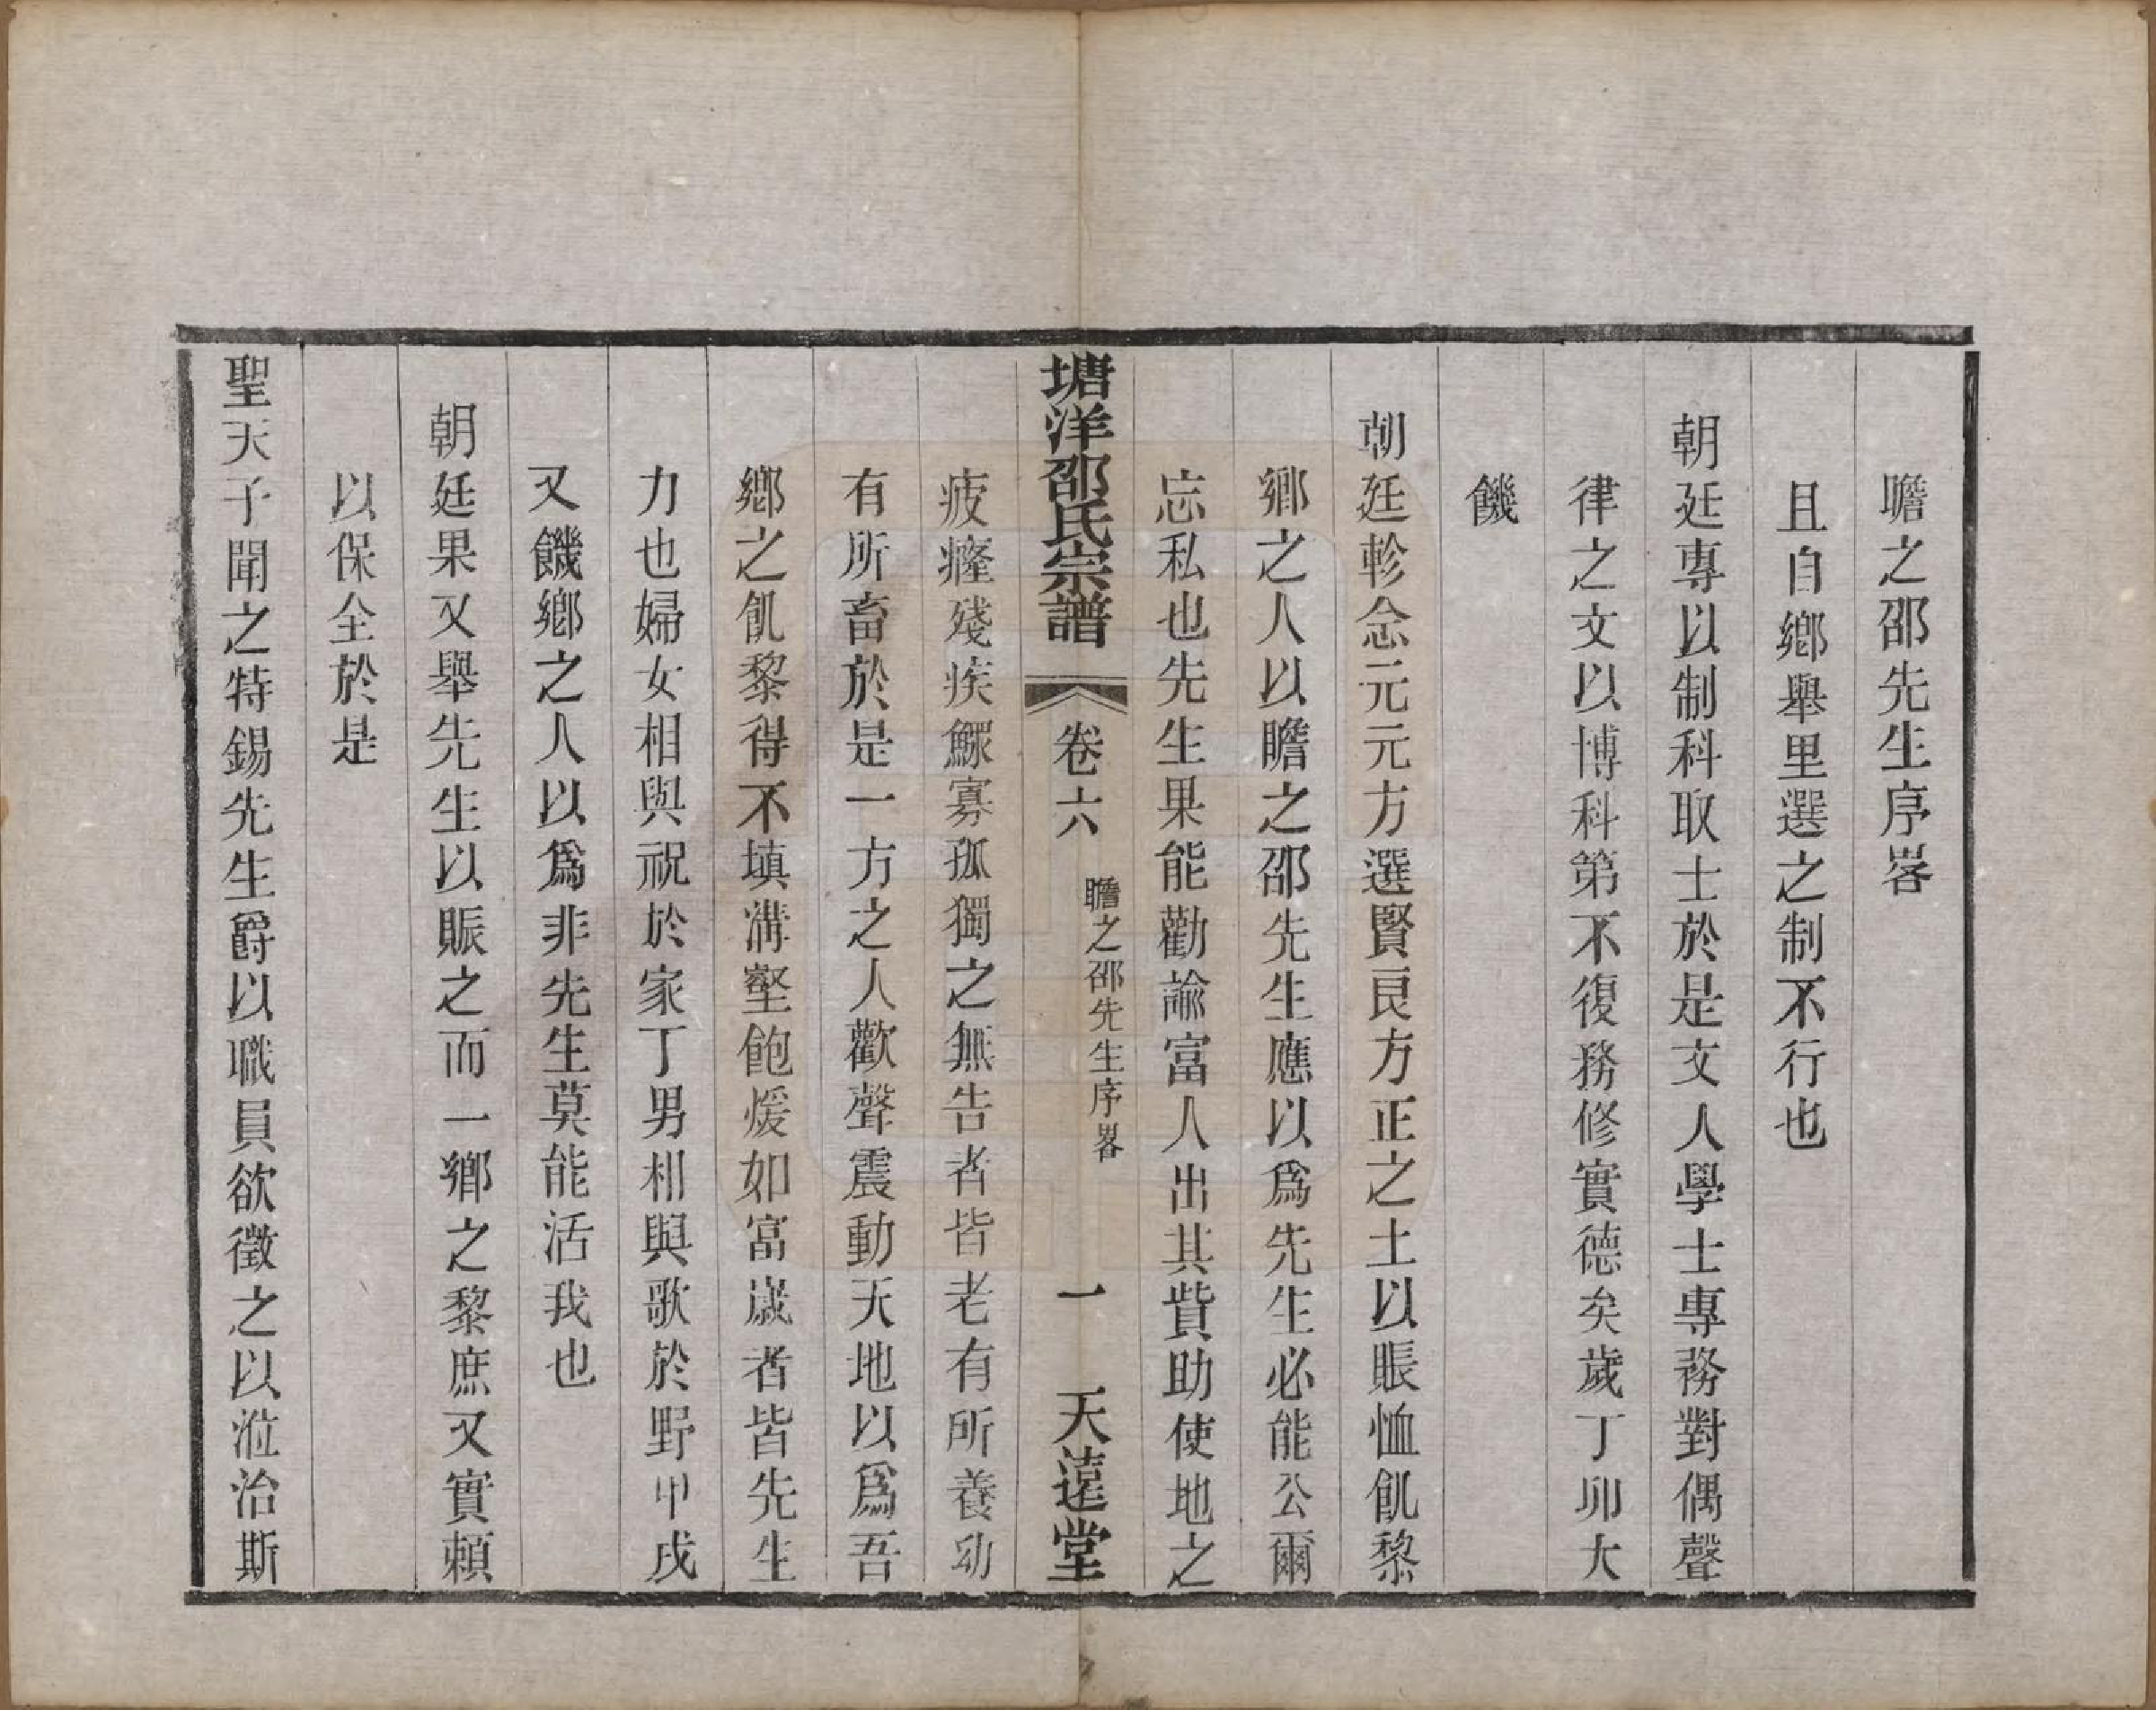 瞻之邵先生序畧
且自鄉舉里選之制不行也
朝廷專以制科取士於是文人學士專務對偶聲
律之文以博科第不復務修實德矣歲丁卯大
饑
朝廷軫念元元方選賢良方正之士以賑恤飢黎
鄉之人以瞻之邵先生應以爲先生必能公爾
忘私也先生果能勸諭富人出其貲助使地之
塘洋邵氏宗譜 卷六 瞻之邵先生序畧 一 天遠堂
疲癃殘疾鰥寡孤獨之無告者皆老有所養幼
有所畜於是一方之人歡聲震動天地以爲吾
鄉之飢黎得不填溝壑飽煖如富歲者皆先生
力也婦女相與祝於家丁男相與歌於野甲戌
又饑鄉之人以爲非先生莫能活我也
朝廷果又舉先生以賑之而一鄉之黎庶又實賴
以保全於是
聖天子聞之特錫先生爵以職員欲徵之以涖治斯